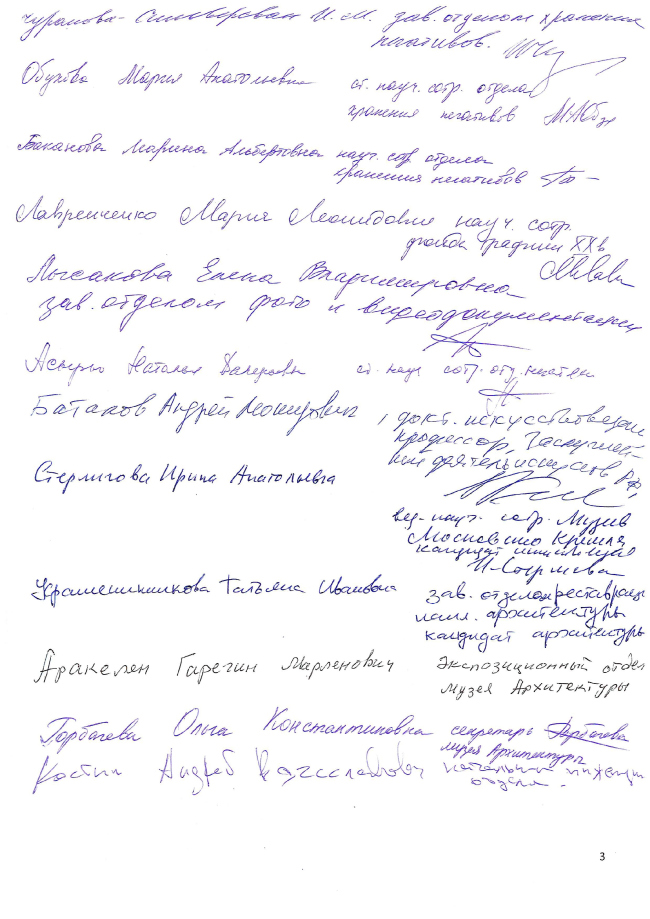 И. М. зав. отделом хранения
негативов.
Обухова Мария Анатольевна ст. науч. сотр. отдела
хранения негативов
Баканова Марина Альбертовна науч. сотр отдела
хранения негативов
Лавренченко Мария Леонидовна науч. сотр.
графики XX в
Лысакова Елена Владимировна
зав. отделом фото и видеодокументации
Наталья Валерьевна ст. науч сотр. отд.
Баталов Андрей Леонидович, докт. искусствоведения
профессор, Заслужен-
ный деятель искусств РФ,
Стерлигова Ирина Анатольевна
вед. науч. сотр. Музеев
Московского Кремля
кандидат
И. Стерлигова
Крашенинникова Татьяна Ивановна зав. отделом реставрац
пам. архитектуры
кандидат архитектуры
Аракелян Гарегин Марленович Экспозиционный отдел
Музея Архитектуры
Горбачева Ольга Константиновна секретарь Горбачева
музея Архитектуры
Костин Андрей Вячеславович
отдела.
3